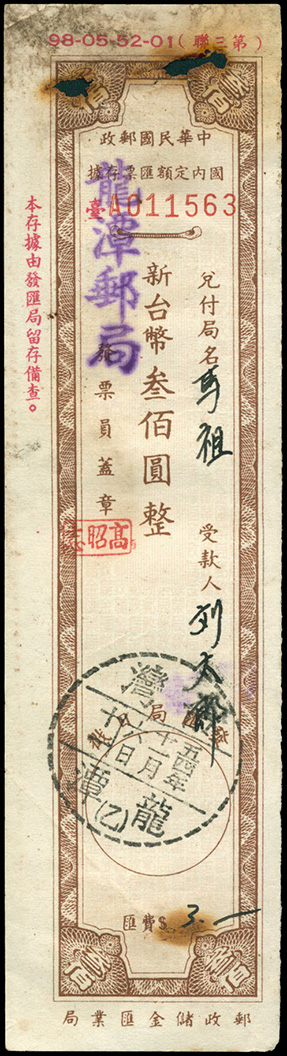 98-05-52-01（第三聯）
叁佰
叁佰
中華民國郵政
國內定額匯票存據
臺A011563
兌付局名 馬祖
受款人
新台幣叁佰圓整
龍潭郵局
發票員蓋章
高昭
本存據由發匯局留存備查。
灣
五四年
十月
十日
龍潭
(乙)
匯費$ 3.一
叁佰
叁佰
郵政儲金匯業局